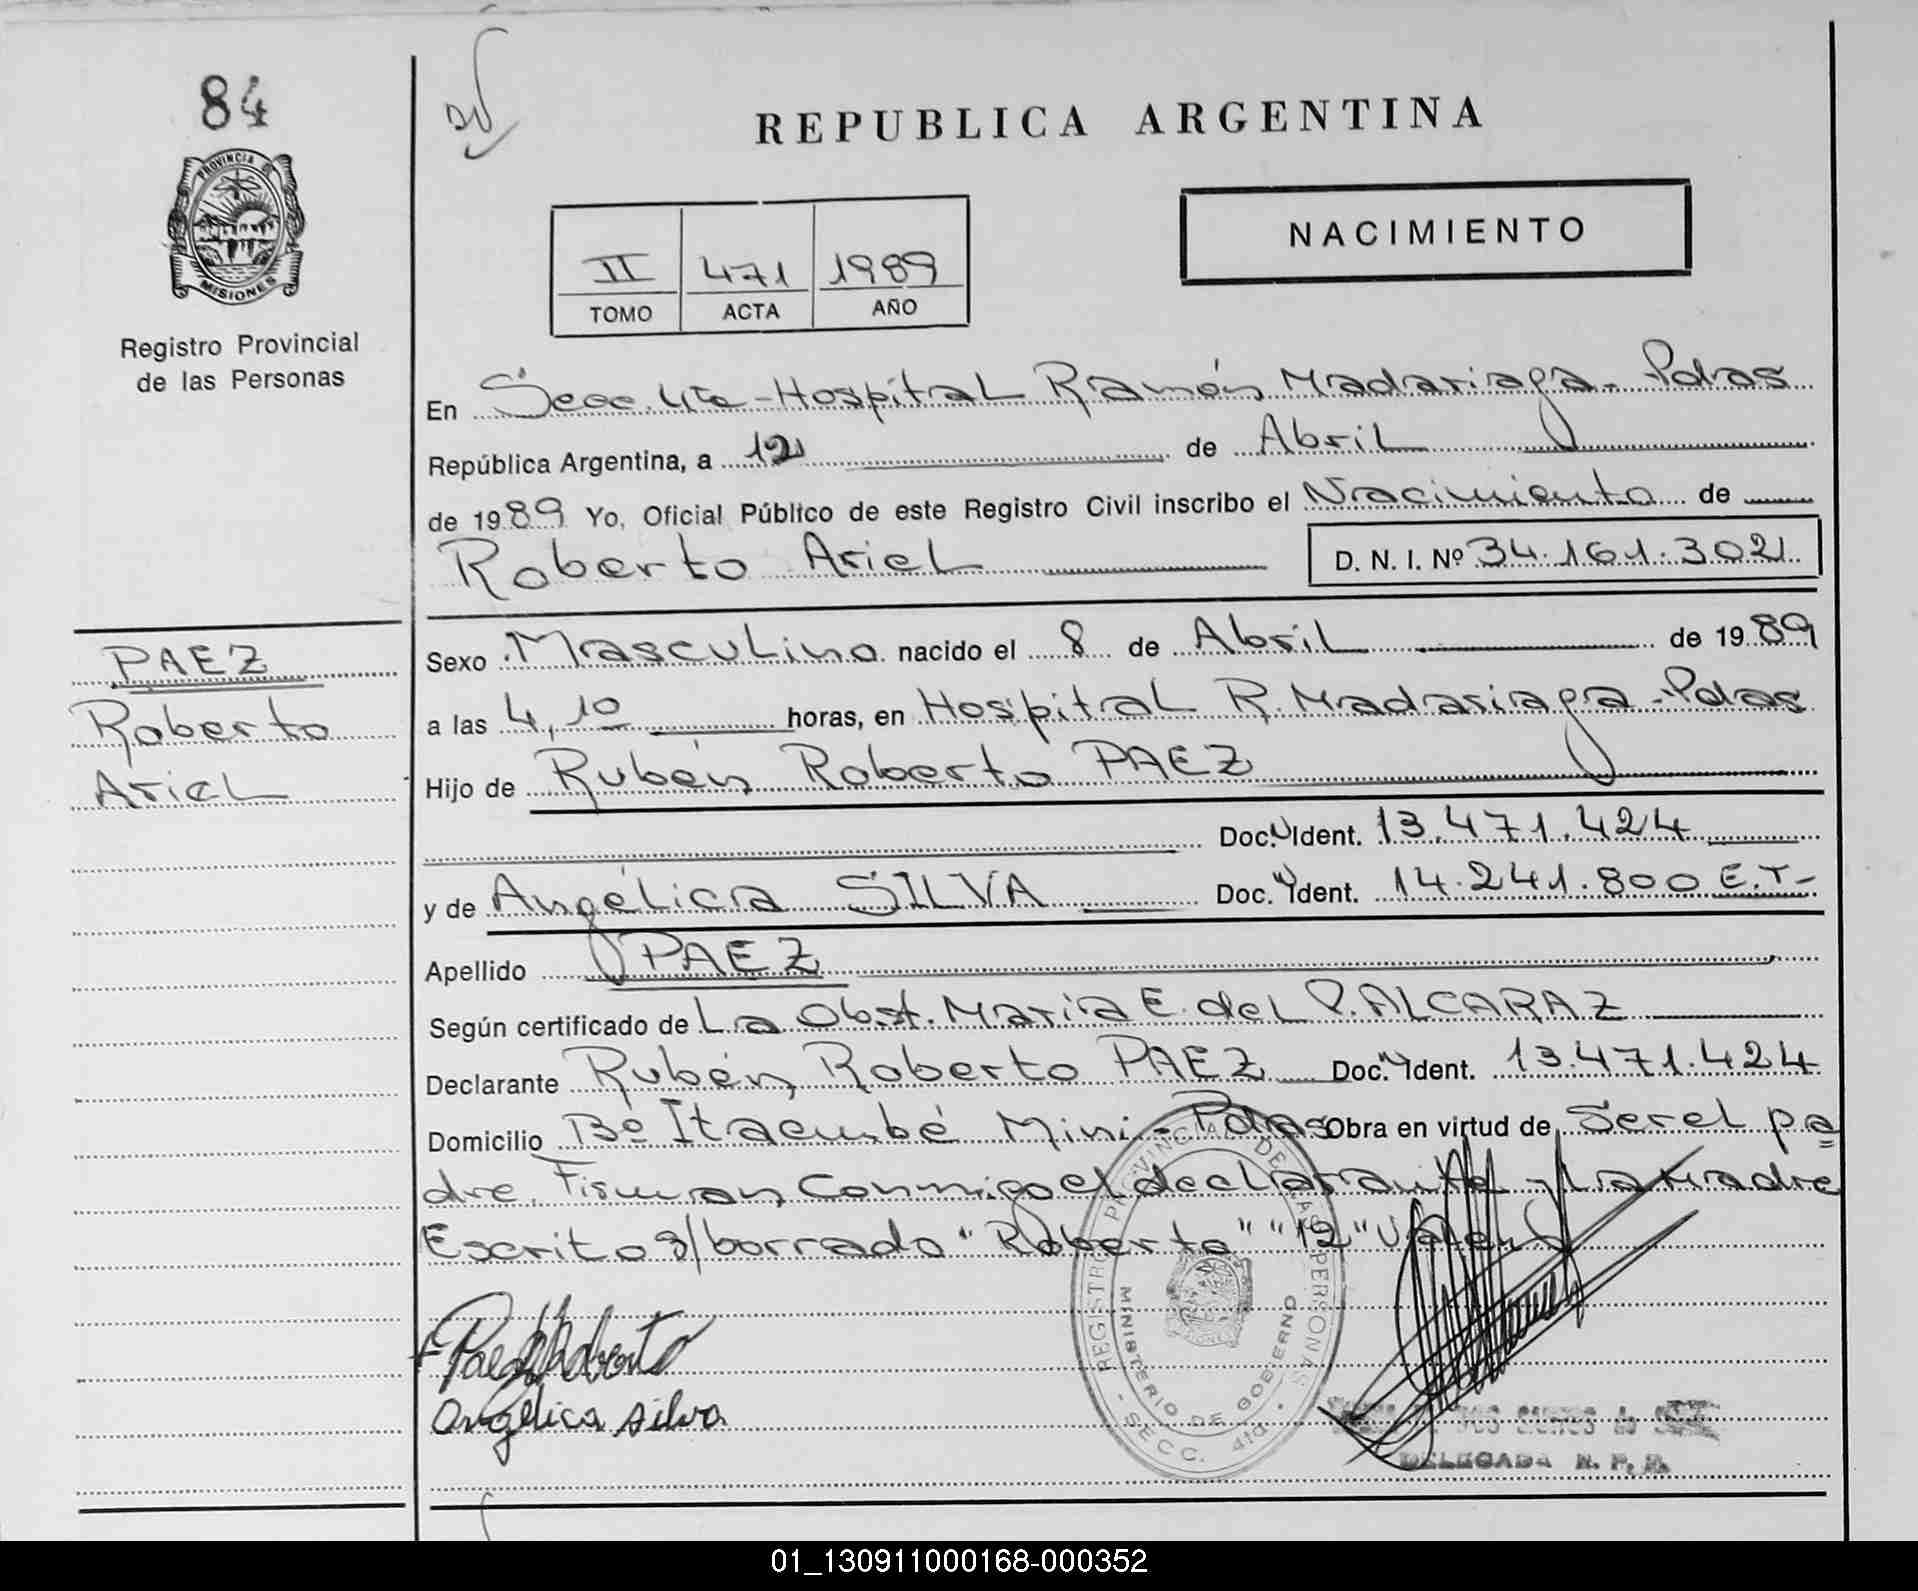 84
PROVINCIA DE
MISIONES
Registro Provincial
de las Personas
REPUBLICA ARGENTINA
NACIMIENTO
II 471 1989
TOMO ACTA AÑO
En Secc. 4ta - Hospital Ramón Madariaga - Pdas
República Argentina, a 12 de Abril
de 1989 Yo, Oficial Público de este Registro Civil inscribo el Nacimiento de
Roberto Ariel D. N. I. Nº 34.161.302
PAEZ
Roberto
Ariel
Sexo Masculino nacido el 8 de Abril de 1989
a las 4,10 horas, en Hospital R. Madariaga - Pdas
Hijo de Rubén Roberto PAEZ
Doc. Ident. 13.471.424
y de Angélica SILVA Doc. Ident. 14.241.800 E.T-
Apellido PAEZ
Según certificado de La Obst. María E. del P. ALCARAZ
Declarante Rubén Roberto PAEZ Doc. Ident. 13.471.424
Domicilio Bº Itaembé Mini - Pdas Obra en virtud de Ser el pa
dre. Firman conmigo el declarante y la madre
Escrito s/borrado "Roberto" "12" Valen
Paez Roberto
Angélica Silva
REGISTRO PROVINCIAL DE LAS PERSONAS
MINISTERIO DE GOBIERNO
- SECC. 4ta -
DELEGADA R. P. P.
01_130911000168-000352